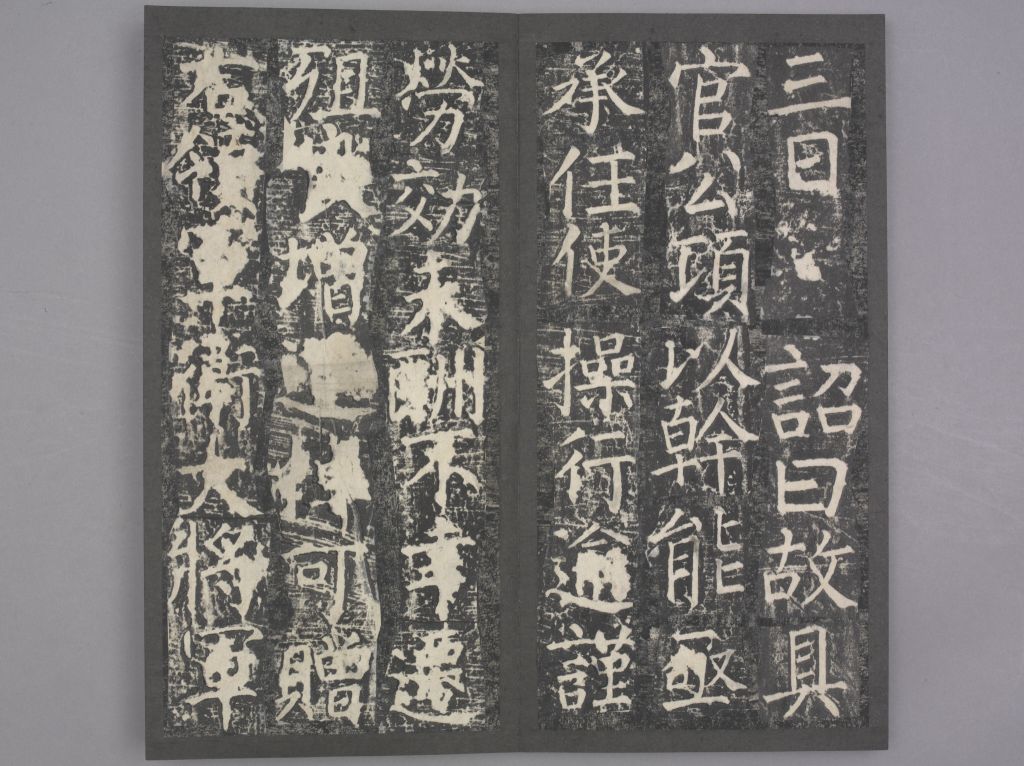 三日詔曰故具
官公以幹能亟
承任使操行逾謹
勞効未酬不幸遘
殂增可贈
右領軍衛大將軍